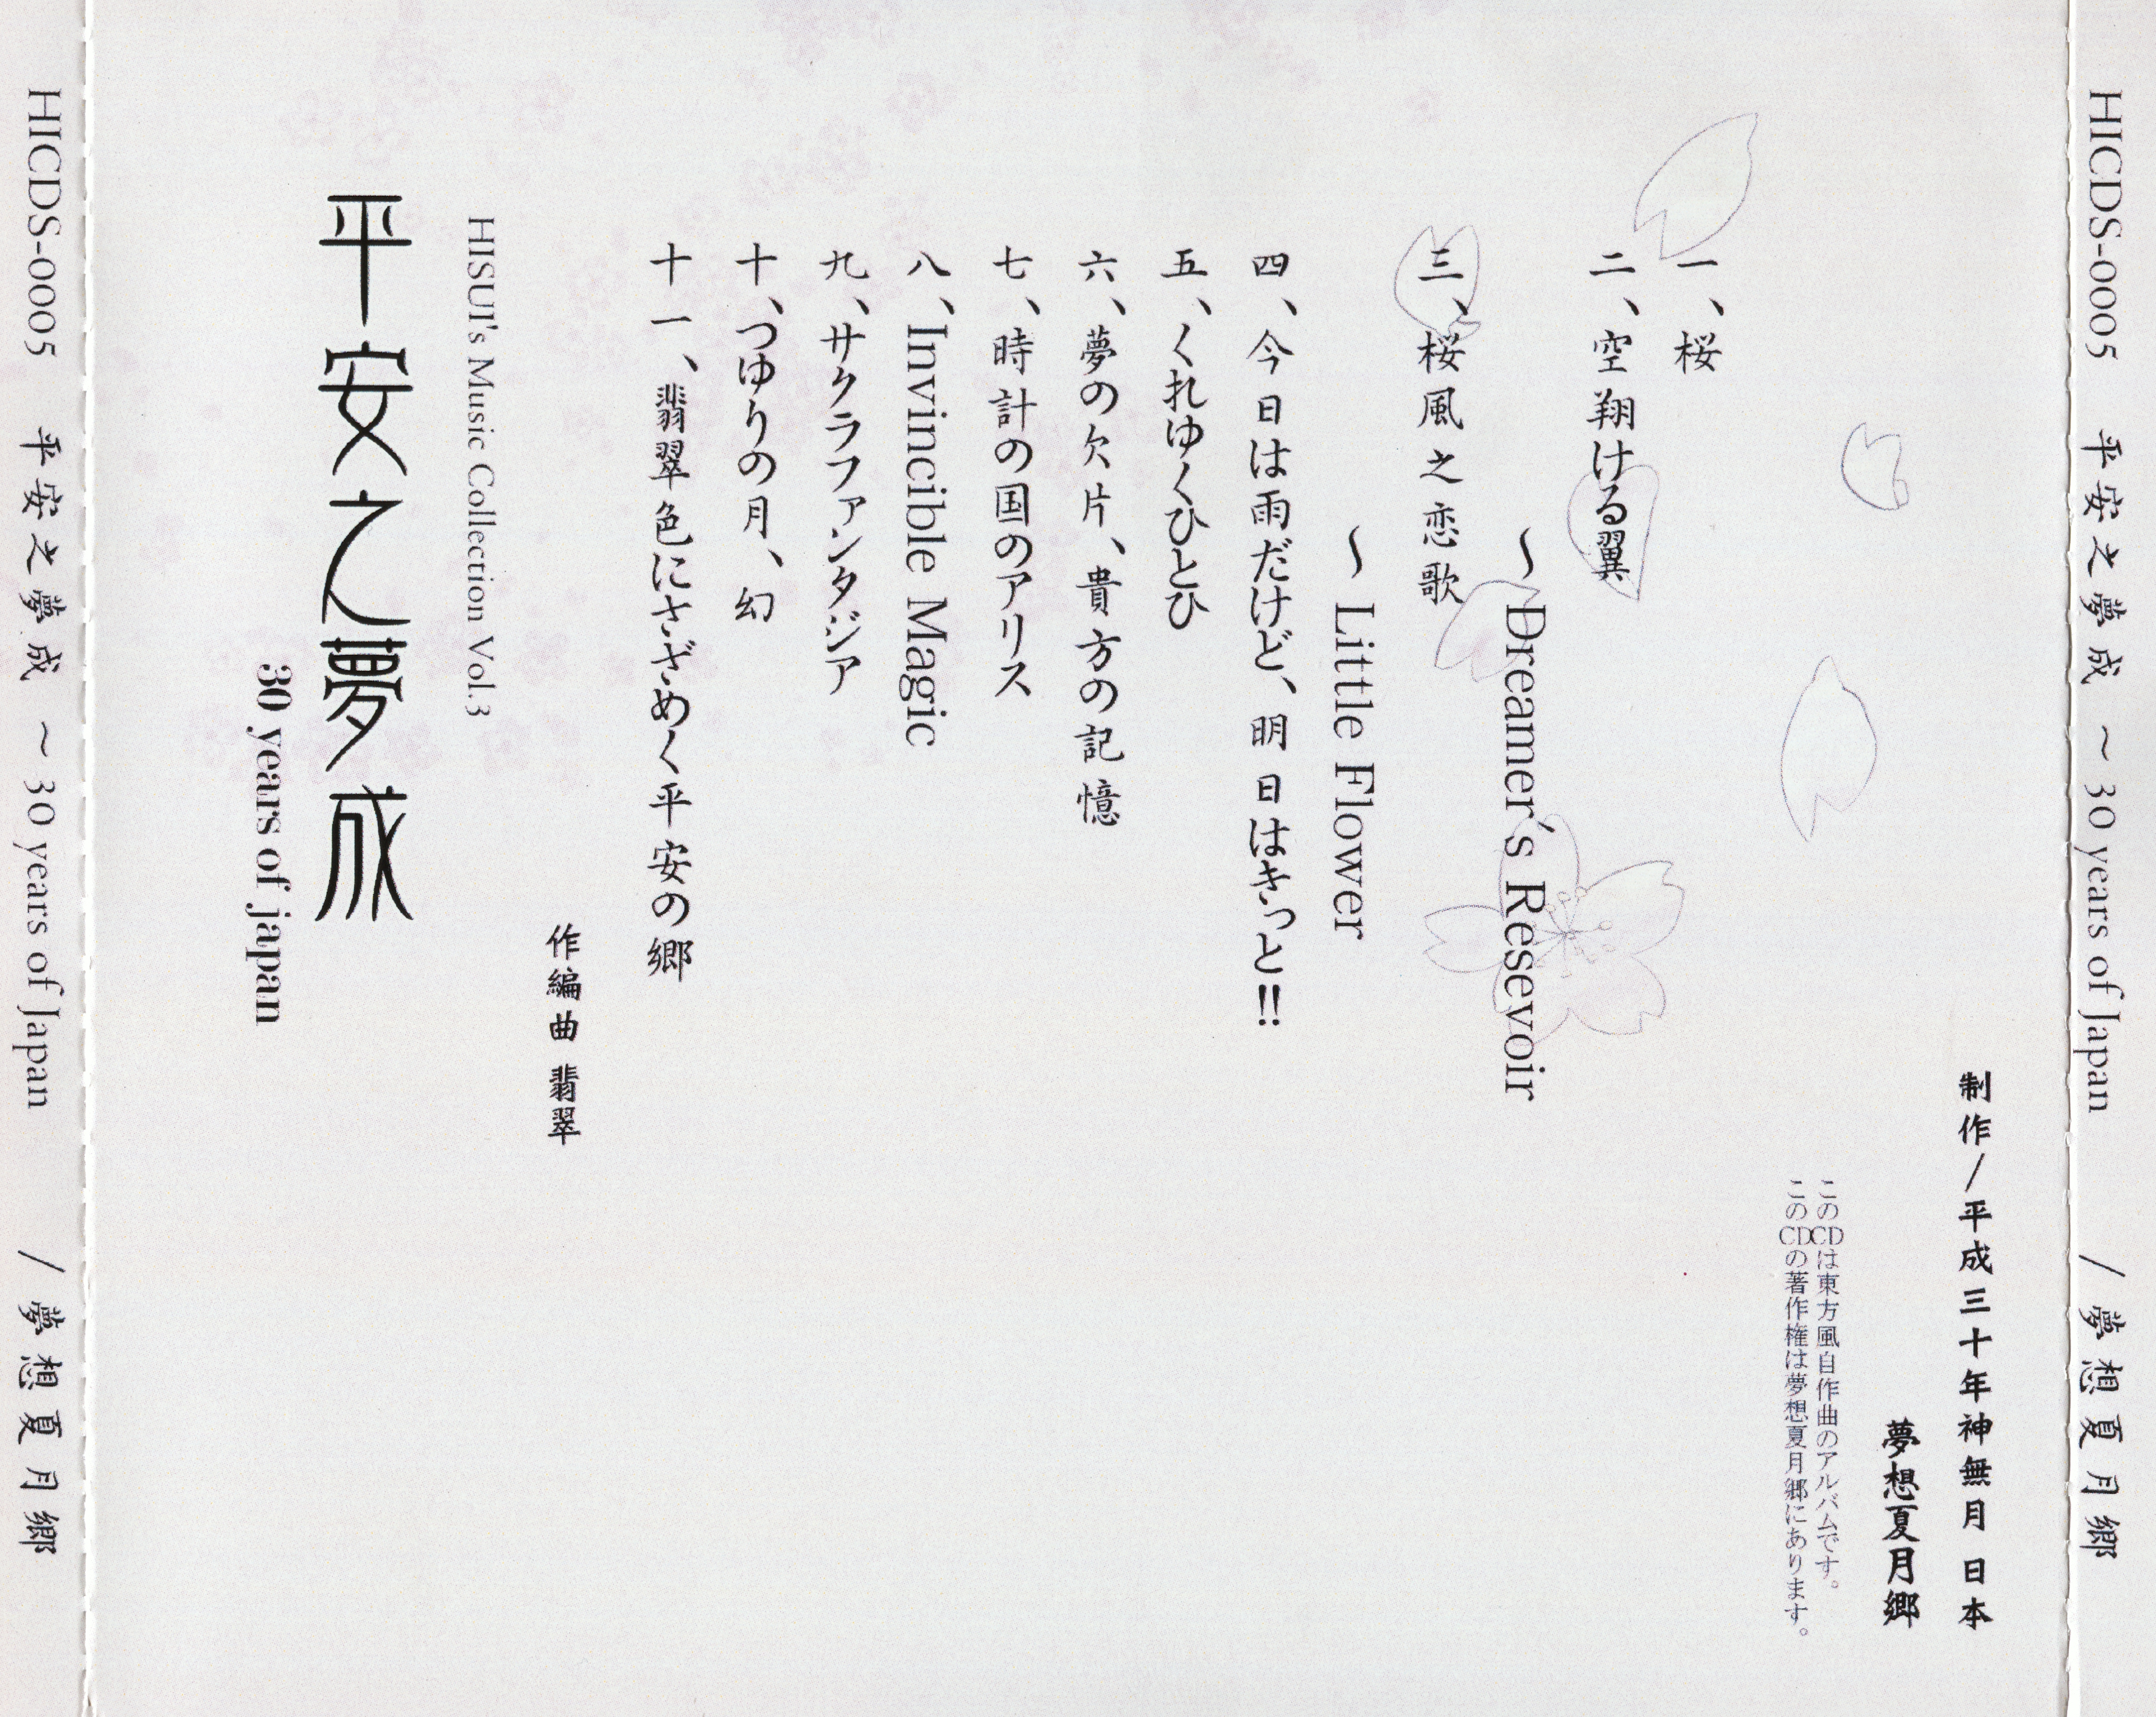 HICDS-0005 平安之夢成 ～30 years of Japan / 夢想夏月郷
制作/平成三十年神無月 日本
夢想夏月郷
このCDは東方風自作曲のアルバムです。
このCDの著作権は夢想夏月郷にあります。
一、桜
二、空翔ける翼
～Dreamer's Resevoir
三、桜風之恋歌
～ Little Flower
四、今日は雨だけど、明日はきっと!!
五、くれゆくひとひ
六、夢の欠片、貴方の記憶
七、時計の国のアリス
八、Invincible Magic
九、サクラファンタジア
十、つゆりの月、幻
十一、翡翠色にさざめく平安の郷
作編曲 翡翠
HISUI's Music Collection Vol.3
平安之夢成
30 years of japan
HICDS-0005 平安之夢成 ～30 years of Japan / 夢想夏月郷